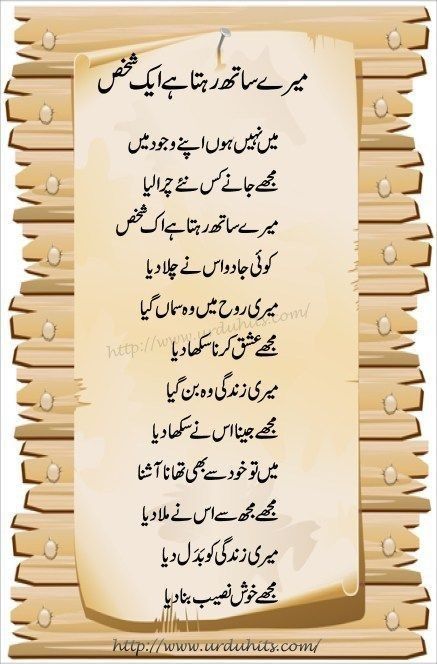 http://www.urduhits.com/
میرے ساتھ رہتا ہے ایک شخص
میں نہیں ہوں اپنے وجود میں
مجھے جانے کس نئے چرا لیا
میرے ساتھ رہتا ہے اک شخص
کوئی جادو اس نے چلا دیا
میری روح میں وہ سماں گیا
http://www.urduhits.com/
مجھے عشق کرنا سکھا دیا
میری زندگی وہ بن گیا
مجھے جینا اس نے سکھا دیا
میں تو خود سے بھی تھا نا آشنا
مجھے مجھ سے اس نے ملا دیا
میری زندگی کو بَدَل دیا
مجھے خوش نصیب بنا دیا
http://www.urduhits.com/